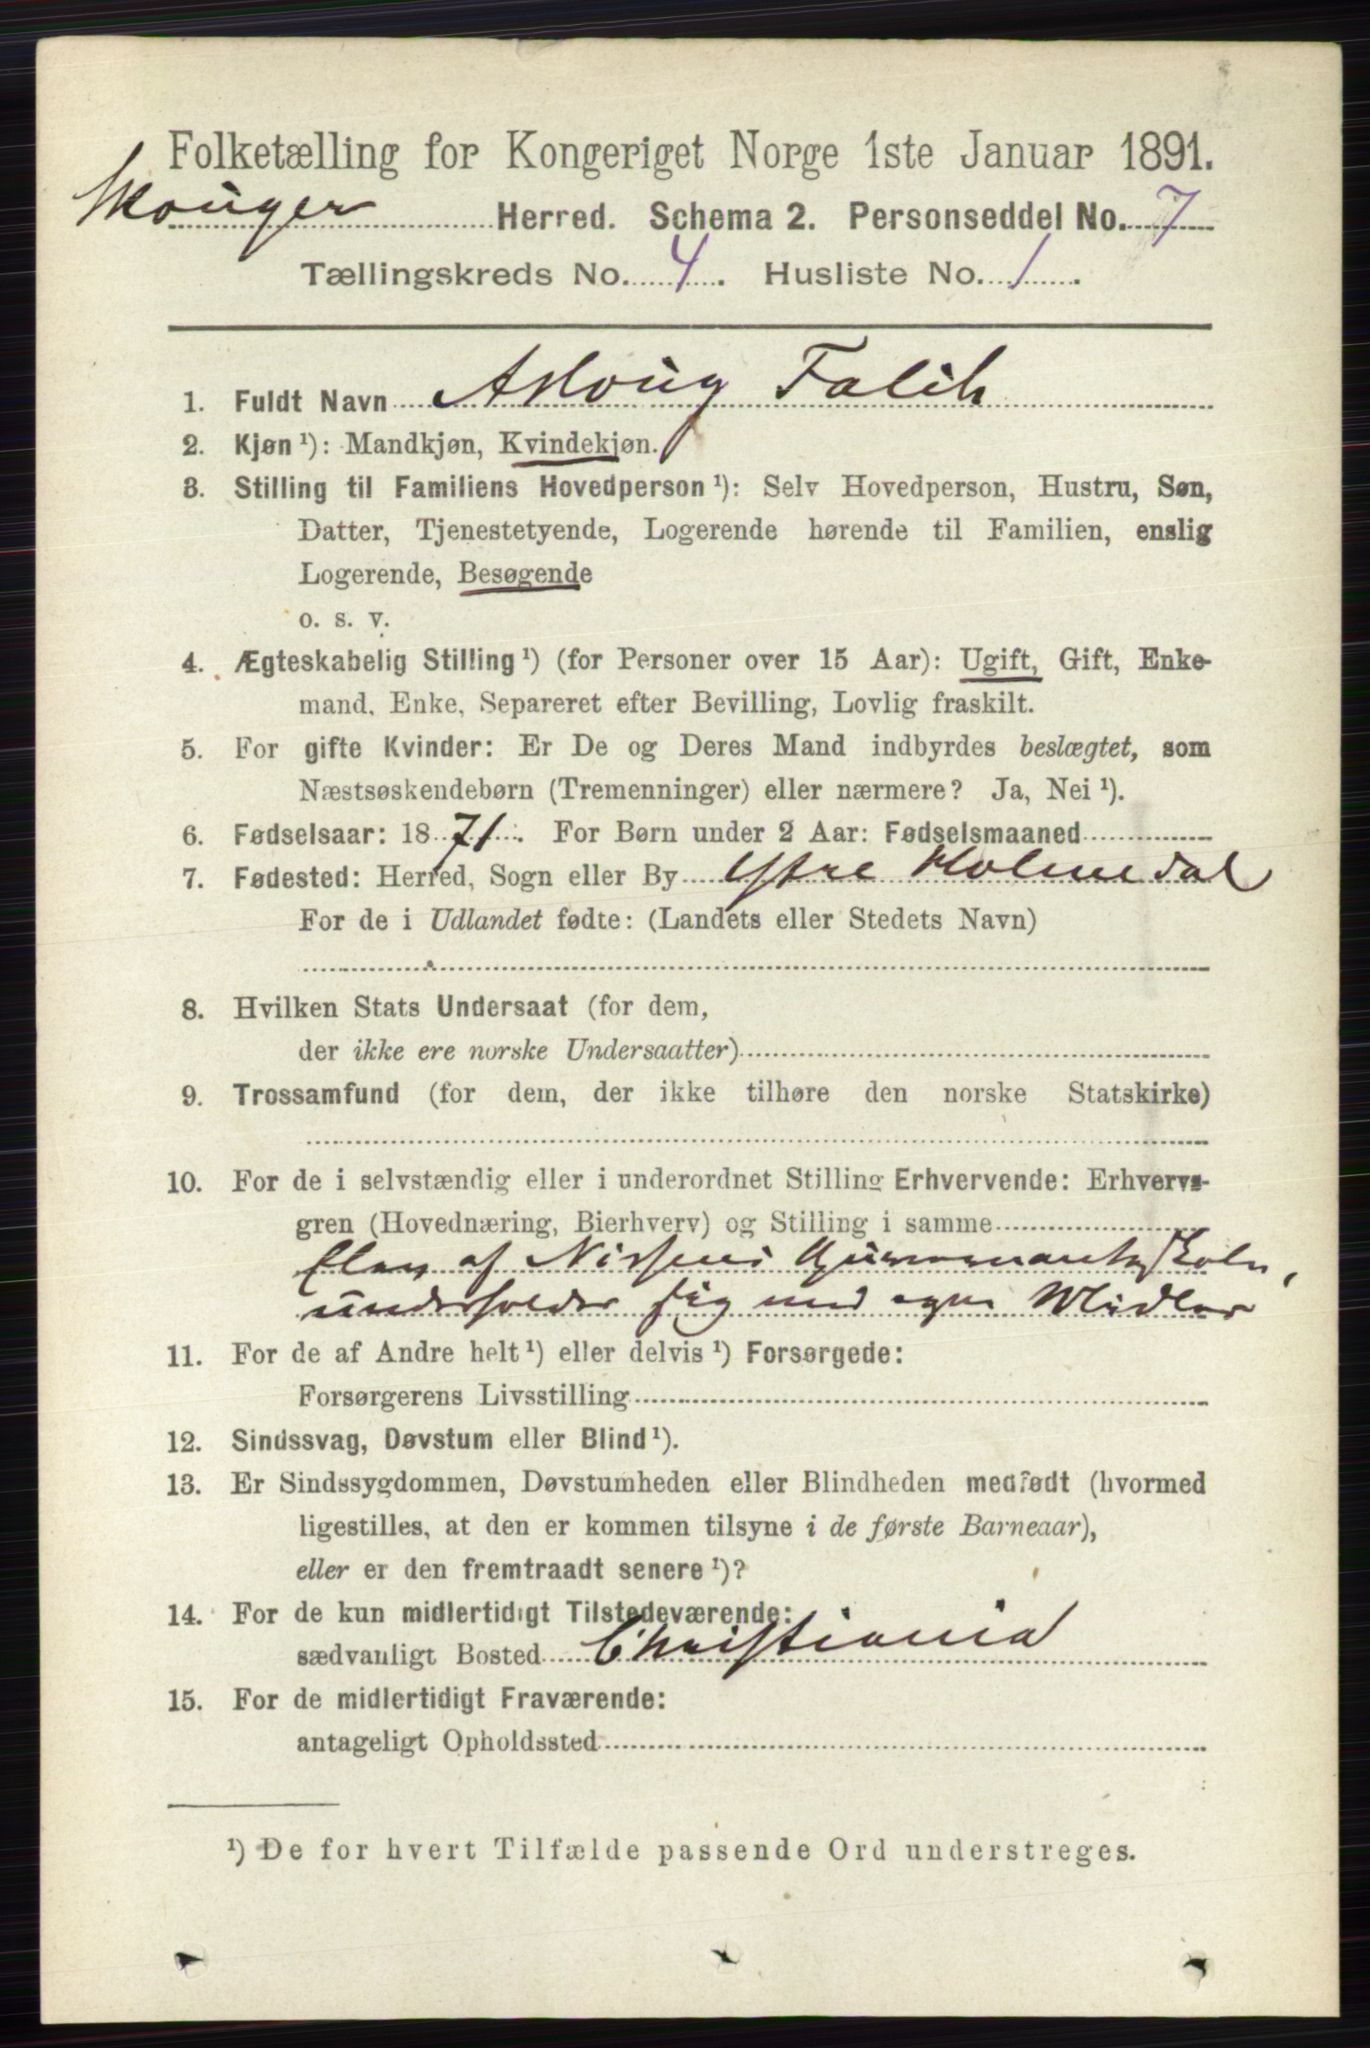 Folketælling for Kongeriget Norge 1ste Januar 1891.
Skouger Herred. Schema 2. Personseddel No. 7
Tællingskreds No. 4. Husliste No. 1.
1. Fuldt Navn Asloug Falch
2. Kjøn ¹): Mandkjøn, Kvindekjøn.
3. Stilling til Familiens Hovedperson ¹): Selv Hovedperson, Hustru, Søn,
Datter, Tjenestetyende, Logerende hørende til Familien, enslig
Logerende, Besøgende
o. s. v.
4. Ægteskabelig Stilling ¹) (for Personer over 15 Aar): Ugift, Gift, Enke-
mand, Enke, Separeret efter Bevilling, Lovlig fraskilt.
5. For gifte Kvinder: Er De og Deres Mand indbyrdes beslægtet, som
Næstsøskendebørn (Tremenninger) eller nærmere? Ja, Nei ¹).
6. Fødselsaar: 1871. For Børn under 2 Aar: Fødselsmaaned
7. Fødested: Herred, Sogn eller By Ytre Holmedal
For de i Udlandet fødte: (Landets eller Stedets Navn)
8. Hvilken Stats Undersaat (for dem,
der ikke ere norske Undersaatter)
9. Trossamfund (for dem, der ikke tilhøre den norske Statskirke)
10. For de i selvstændig eller i underordnet Stilling Erhvervende: Erhvervs-
gren (Hovednæring, Bierhverv) og Stilling i samme
Elev af Nissens Guvernanteskole,
underholder sig med egne Midler
11. For de af Andre helt ¹) eller delvis ¹) Forsørgede:
Forsørgerens Livsstilling
12. Sindssvag, Døvstum eller Blind ¹).
13. Er Sindssygdommen, Døvstumheden eller Blindheden medfødt (hvormed
ligestilles, at den er kommen tilsyne i de første Barneaar),
eller er den fremtraadt senere ¹)?
14. For de kun midlertidigt Tilstedeværende:
sædvanligt Bosted Christiania
15. For de midlertidigt Fraværende:
antageligt Opholdssted
¹) De for hvert Tilfælde passende Ord understreges.